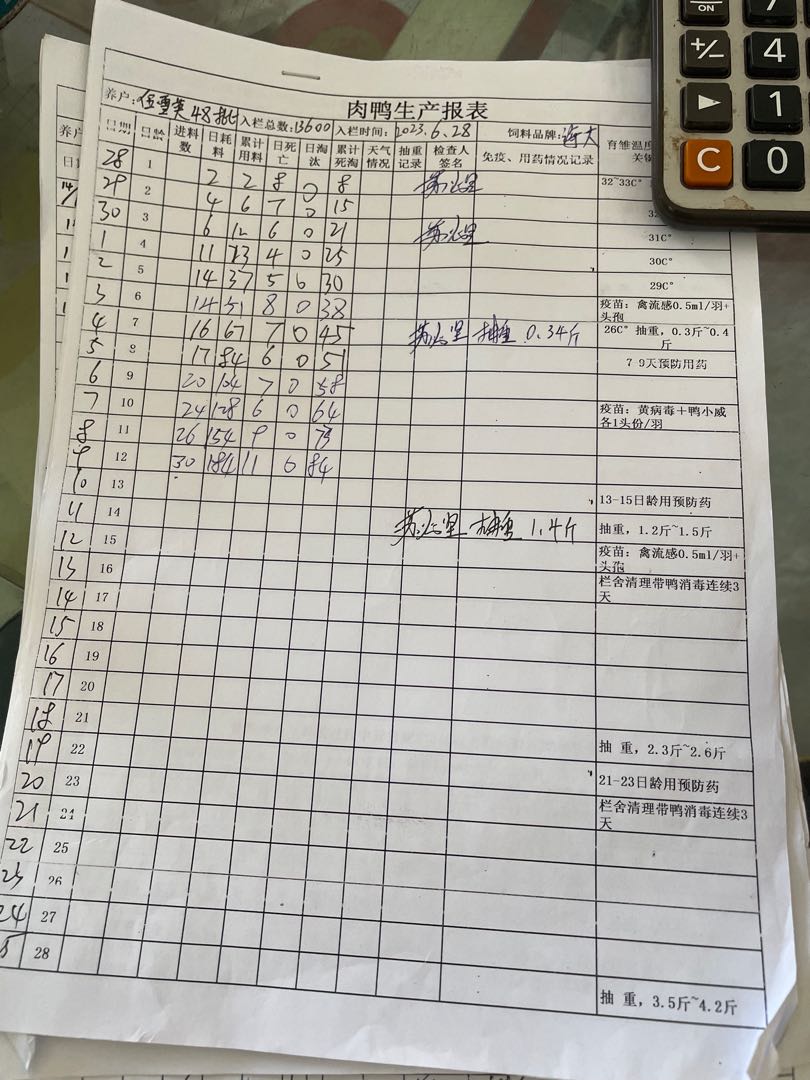 肉鸭生产报表
养户: 伍雪英 48批 入栏总数:13600 入栏时间: 2023.6.28 饲料品牌: 海大
日期 日龄 进料数 日耗料 累计用料 日死亡 日淘汰 累计死淘 天气情况 抽重记录 检查人签名 免疫、用药情况记录 育雏温度 关键
28 1 2 2 8 0 8 32~33C°
29 2 4 6 7 0 15
30 3 6 12 6 0 21 31C°
1 4 11 23 4 0 25 30C°
2 5 14 37 5 0 30 29C°
3 6 14 51 8 0 38 疫苗：禽流感0.5ml/羽+头孢
4 7 16 67 7 0 45 抽重 0.34斤 26C° 抽重，0.3斤~0.4斤
5 8 17 84 6 0 51 7-9天预防用药
6 9 20 104 7 0 58
7 10 24 128 6 0 64 疫苗：黄病毒＋鸭小威各1头份/羽
8 11 26 154 9 0 73
9 12 30 184 11 0 84
10 13 13-15日龄用预防药
11 14 抽重 1.4斤 抽重，1.2斤~1.5斤
12 15 疫苗：禽流感0.5ml/羽+头孢
13 16 栏舍清理带鸭消毒连续3天
14 17
15 18
16 19
17 20
18 21
19 22 抽 重，2.3斤~2.6斤
20 23 21-23日龄用预防药
21 24 栏舍清理带鸭消毒连续3天
22 25
23 26
24 27
28
抽 重，3.5斤~4.2斤
ON 7
+/- 4
1
C 0